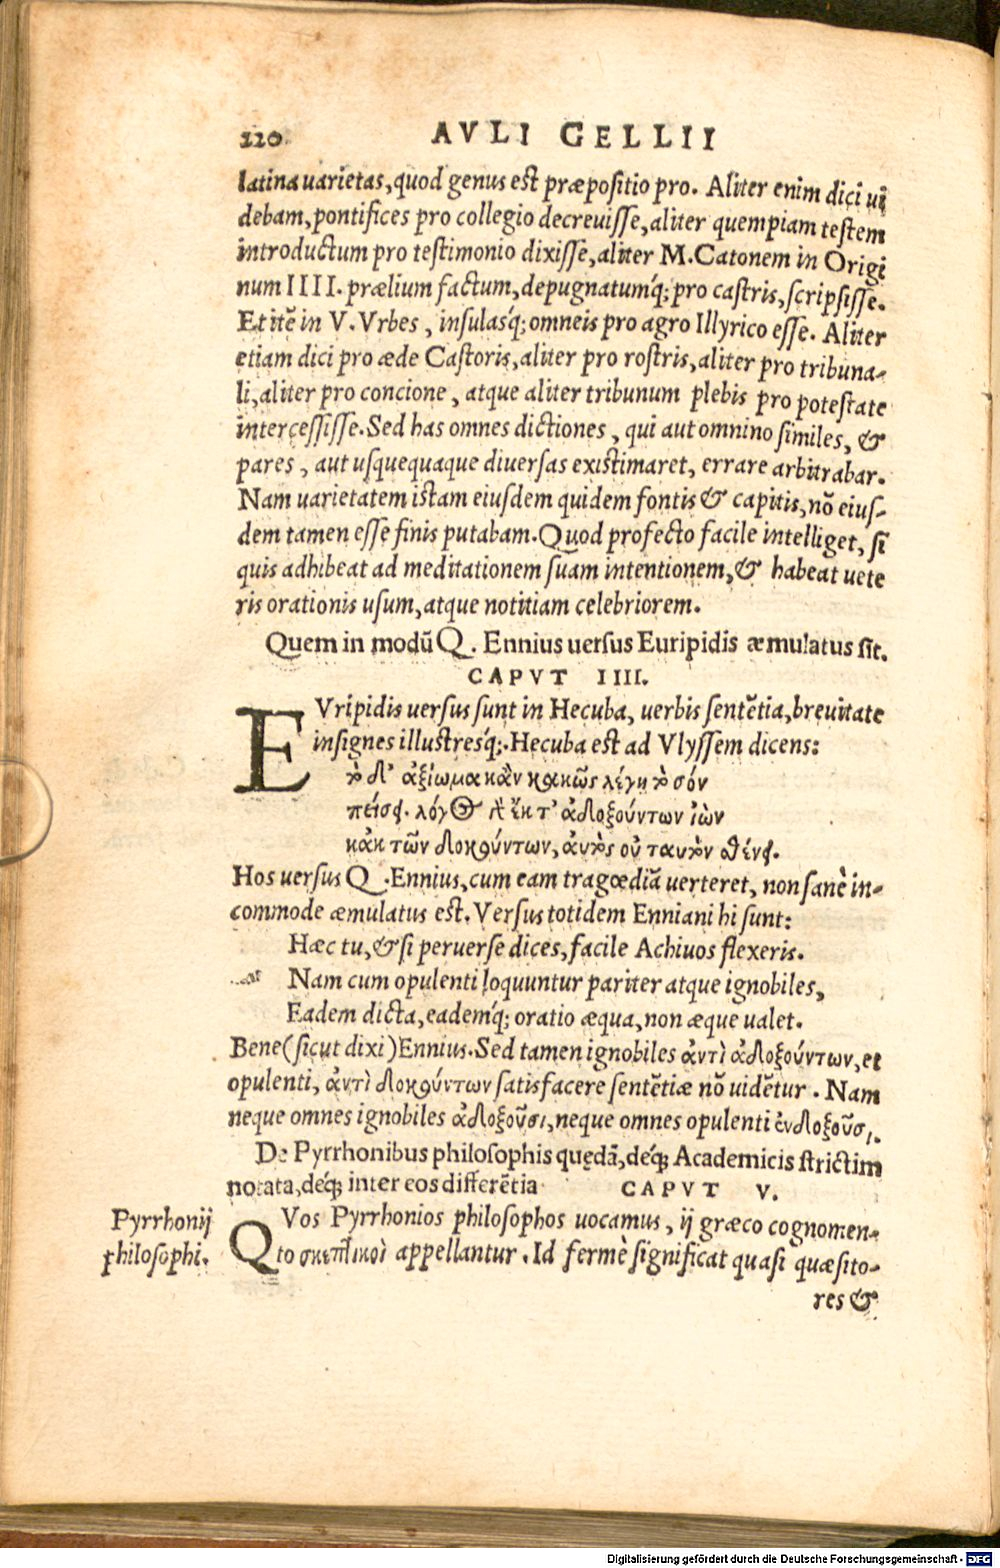 220 AVLI GELLII
latina uarietas, quod genus est præpositio pro. Aliter enim dici ui
debam, pontifices pro collegio decreuisse, aliter quempiam testem
introductum pro testimonio dixisse, aliter M. Catonem in Origi
num IIII. prælium factum, depugnatumq́; pro castris, scripsisse.
Et itē in V. Vrbes, insulasq́; omneis pro agro Illyrico esse. Aliter
etiam dici pro æde Castoris, aliter pro rostris, aliter pro tribuna-
li, aliter pro concione, atque aliter tribunum plebis pro potestate
intercessisse. Sed has omnes dictiones, qui aut omnino similes, &
pares, aut usquequaque diuersas existimaret, errare arbitrabar.
Nam uarietatem istam eiusdem quidem fontis & capitis, nō eius-
dem tamen esse finis putabam. Quod profecto facile intelliget, si
quis adhibeat ad meditationem suam intentionem, & habeat uete
ris orationis usum, atque notitiam celebriorem.
Quem in modū Q. Ennius uersus Euripidis æmulatus sit.
CAPVT IIII.
EVripidis uersus sunt in Hecuba, uerbis sentētia, breuitate
insignes illustresq́;. Hecuba est ad Vlyssem dicens:
τὸ δ' ἀξίωμα κἂν κακῶς λέγῃ τὸ σόν
πείσει. λόγος γὰρ ἔκ τ' ἀδοξούντων ἰὼν
κἀκ τῶν δοκούντων, ἀυτὸς οὐ ταυτὸν σθένει.
Hos uersus Q. Ennius, cum eam tragœdiā uerteret, non sanè in-
commode æmulatus est. Versus totidem Enniani hi sunt:
Hæc tu, & si peruerse dices, facile Achiuos flexeris.
Nam cum opulenti loquuntur pariter atque ignobiles,
Eadem dicta, eademq́; oratio æqua, non æque ualet.
Bene (sicut dixi) Ennius. Sed tamen ignobiles ἀντὶ ἀδοξούντων, et
opulenti, ἀντὶ δοκούντων satisfacere sentētiæ nō uidētur. Nam
neque omnes ignobiles ἀδοξοῦσι, neque omnes opulenti ἐνδοξοῦσι.
De Pyrrhonibus philosophis quędā, déq́; Academicis strictim
notata, déq́; inter eos differētia CAPVT V.
Pyrrhonij
philosophi.
QVos Pyrrhonios philosophos uocamus, ij græco cognomen-
to σκεπτικοὶ appellantur. Id fermè significat quasi quæsito-
res &
Digitalisierung gefördert durch die Deutsche Forschungsgemeinschaft - DFG